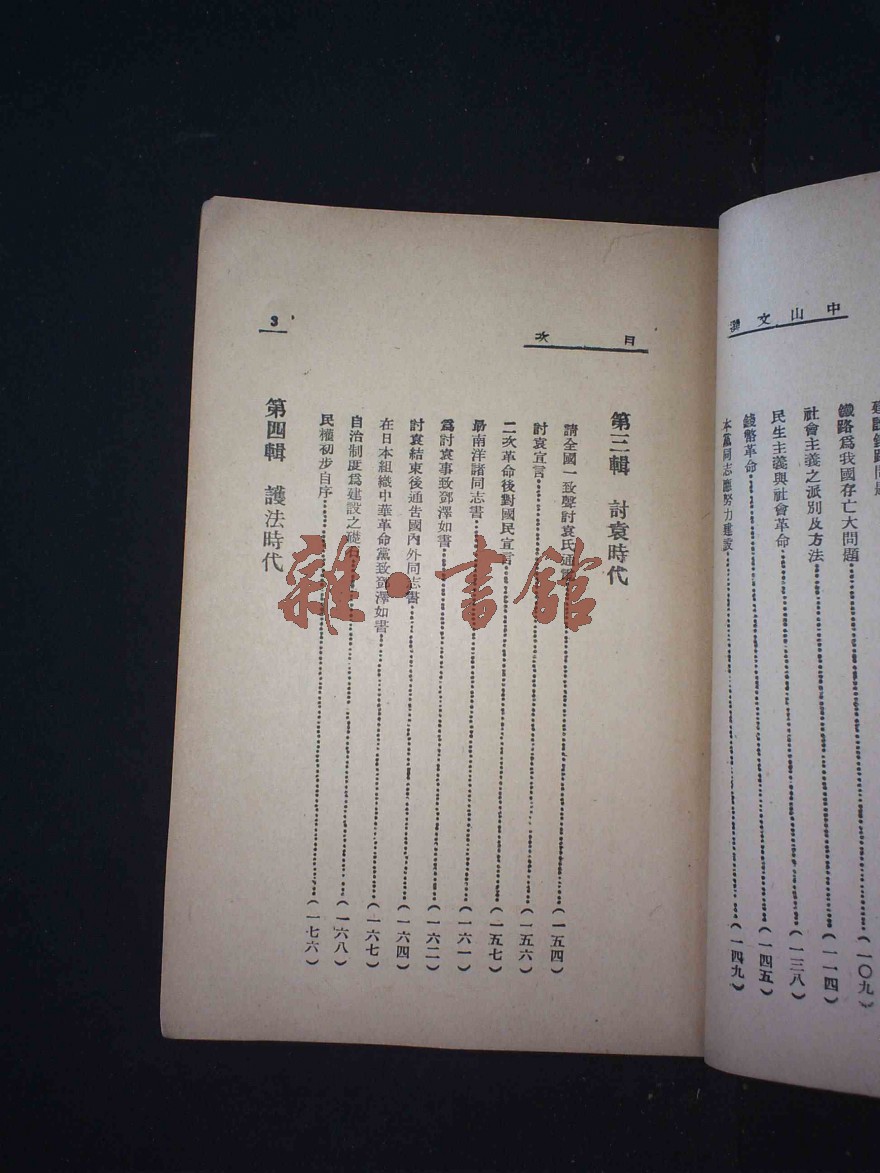 中山文選
鐵路爲我國存亡大問題⋯⋯(一〇九)
社會主義之派別及方法⋯⋯(一一四)
民生主義與社會革命⋯⋯(一三八)
錢幣革命⋯⋯(一四五)
本黨同志應努力建設⋯⋯(一四九)
目次
3
第三輯 討袁時代
請全國一致聲討袁氏通電⋯⋯(一五四)
討袁宣言⋯⋯(一五六)
二次革命後對國民宣言⋯⋯(一五七)
南洋諸同志書⋯⋯(一六一)
爲討袁事致鄧澤如書⋯⋯(一六二)
討袁結束後通告國內外同志書⋯⋯(一六四)
在日本組織中華革命黨致鄧澤如書⋯⋯(一六七)
自治制匪爲建設之礎石⋯⋯(一六八)
民權初步自序⋯⋯(一七六)
第四輯 護法時代
雜·書館